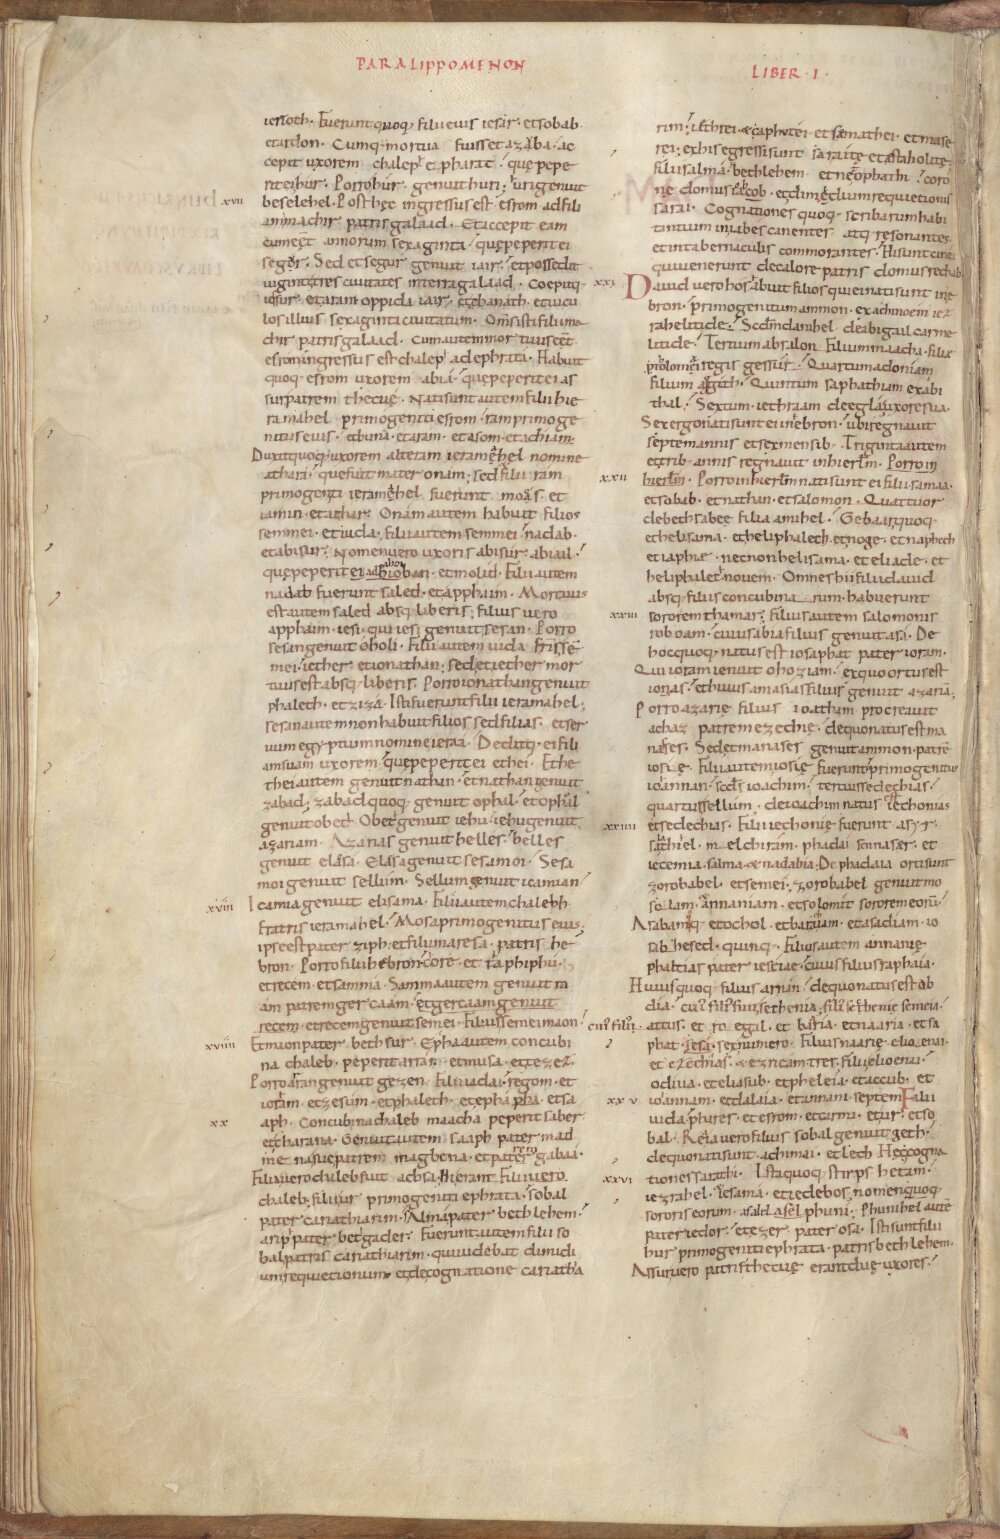 PARALIPPOMENON
LIBER · I ·
ierioth · Fuerunt quoq; filii eius iesir · et sobab
et ardon · Cumq; mortua fuisset azaba · ac
cepit uxorem chaleb ephratę · quę pepe
rit ei hur · Porro hur · genuit huri · uri genuit
xvii
beselehel · Post hęc ingressus est esrom ad fili
am machir patris galaad · Et accepit eam
cum eēt annorum sexaginta · quę peperit ei
segor · Sed et segur genuit iair · et possedit
uiginti tres ciuitates in terra galaad · Coepitq;
et aram oppida iair · et chanath · et uicu
los illius sexaginta ciuitatum · Om̅s isti filii ma
chir patris galaad · Cum autem mortuus eēt
esrom ingressus est chaleb ad ephrata · Habuit
quoq; esrom uxorem abia · quę peperit ei as
sur patrem thecuę · Nati sunt autem filii hie
ramahel primogeniti esrom · ram primoge
nitus eius · et buna · et aram · et asom · et achiam ·
Duxit quoq; uxorem alteram ieramehel nomine
athara · que fuit mater onam · sed et filii ram
primogeniti ieramehel fuerunt moas · et
iamin · et athar · Onam autem habuit filios
semmei · et iuda · filii autem semmei nadab ·
et abisur · Nomen uero uxoris abisur abiail ·
quę peperit ei · et molid · Filii autem
nadab fuerunt saled · et apphaim · Mortuus
est autem saled absq; liberis · filius uero
apphaim · iesi · qui iesi genuit sesan · Porro
sesan genuit oholi · Filii autem iuda
mei · iether et ionathan · sed et iether mor
tuus est absq; liberis · Porro ionathan genuit
phaleth · et ziza · Isti fuerunt filii ieramahel ·
sesan autem non habuit filios sed filias · et ser
uum egyptium nomine ieraa · Deditq; ei fili
am suam uxorem · quę peperit ei ethei · Ethe
thei autem genuit nathan · et nathan genuit
zabad · zabad quoq; genuit ophal · et ophal
genuit obed · Obed genuit iehu · iehu genuit
azariam · Azarias genuit helles · helles
genuit elasa · Elasa genuit sesamoi · Sesa
moi genuit sellum · Sellum genuit icamian
xviii
Icamia genuit elisama · Filii autem chaleb
fratris ieramahel · Mosa primogenitus eius
ipse est pater ziph · et filii maresa · patris he
bron · Porro filii hebron core · et taphiphu ·
et recem · et samma · Samma autem genuit ra
am patrem gercaam · et gercaam genuit
recem · et recem genuit semei · Filius semei maon ·
xviiii
Et maon pater bethsur · Epha autem concubi
na chaleb · peperit arran · et musa · et gezer ·
Porro aran genuit gezen · Filii iadai · regom · et
iotam · et zesum · et phaleth · et epha · et sa
xx
aph · Concubina chaleb maacha peperit saber
et tharana · Genuit autem saaph pater mad
mę na sue patrem magbena · et pater gabaa ·
Filia uero chaleb fuit achsa · Hi erant filii uero
chaleb · filii ur primogeniti ephrata · sobal
pater cariathiarim · salma pater bethlehem ·
arip pater betgader · Fuerunt autem filii so
bal patris cariathiarim · qui uidebat dimidi
um requietionum · et de cognatione cariathia
rim · iethrei · et aphutei · et semathei · et mase
rei · ex his egressi sunt saraitę et estaholitę ·
filii salma · bethlehem · et netophathi · coro
nę domus ioab · et dimedium requietionis
sarai · Cognationes quoq; scribarum habi
tantium in iabes canentes · atq; resonantes ·
et in tabernaculis commorantes · Hi sunt cinei
qui uenerunt de calore patris domus rechab
xxi
Dauid uero hos habuit filios qui ei nati sunt in he
bron · primogenitum ammon · ex achinoem iez
rahelitide · Secd̅m danihel de abigail carme
litide · Tertium absalon · Filium maacha · filię
regis gessur · Quartum adoniam
filium agith · Quintum saphathiam ex abi
thal · Sextum · iethraam de egla uxore sua ·
Sex ergo nati sunt ei in ebron · ubi regnauit
septem annis et sex mensib · Triginta autem
et trib annis regnauit in hierlm · Porro in
xxii
hierlm · Porro in hierlm nati sunt ei filii · samaa ·
et sobab · et nathan · et salomon · Quattuor
de bethsabee filia amihel · Gebaar quoq;
et helisama · et heliphalech · et noge · et naphech
et iaphię · necnon helisama · et eliade · et
heliphaleth nouem · Omnes hii filii dauid
absq; filiis concubinarum · habuerunt
xxiii
sororem thamar · Filius autem salomonis
roboam · cuius abia filius genuit asa · De
hoc quoq; natus est iosaphat pater ioram ·
Qui ioram genuit ohoziam · ex quo ortus est
ioas · et huius amasias filius genuit azariā ·
Porro azarię filius ioatham procreauit
achaz patrem ezechię · de quo natus est ma
nases · Sed et manases genuit ammon patrē
iosię · Filii autem iosię fuerunt primogenitus
iohannan · secd̅s ioachim · tertius sedechias ·
quartus sellum · de ioachim natus iechonias
xxiiii
et sedechias · Filii iechonię fuerunt · asyr ·
salathiel · melchiram · phadai sennaser · et
iecemia · sama · et nadabia · De phadaia orti sunt
zorobabel et semei · zorobabel genuit mo
sollam · annaniam · et solomit sororem eorū ·
Asabam quoq; et ochol · et barachiam · et asadiam · io
sab hesed · quinq; · Filius autem annanię
phaltias pater ieseiae · cuius filius raphaia ·
Huius quoq; filius arnan · de quo natus est ob
dia · cui' fili' fuit sethenia · fili' sethenię semeia ·
cui' filii
attus · et egil · et baria · et naaria · et sa
phat · sesa · sex numero · Filius naarię · elioenai ·
et ezechias · et ezricam tres · filii elioenai ·
odiua · et eliasub · et pheleia · et accub · et
xxv
iohannan · et dalaia · et annani · septem Filii
iuda phares · et esrom · et carmi · et ur · et so
bal · Reia uero filius sobal genuit geth ·
de quo nati sunt achimai · et lech Hę cogna
xxvi
tiones sarathi · Ista quoq; stirps hetam ·
iezrahel · iesama · et iedebos · nomen quoq;
sororis eorum · asalel phuni · Phunihel autē
pater iedor · et ezer pater osa · Isti sunt filii
hur primogeniti ephrata · patris bethlehem ·
Assur uero patris thecuę erant duę uxores ·